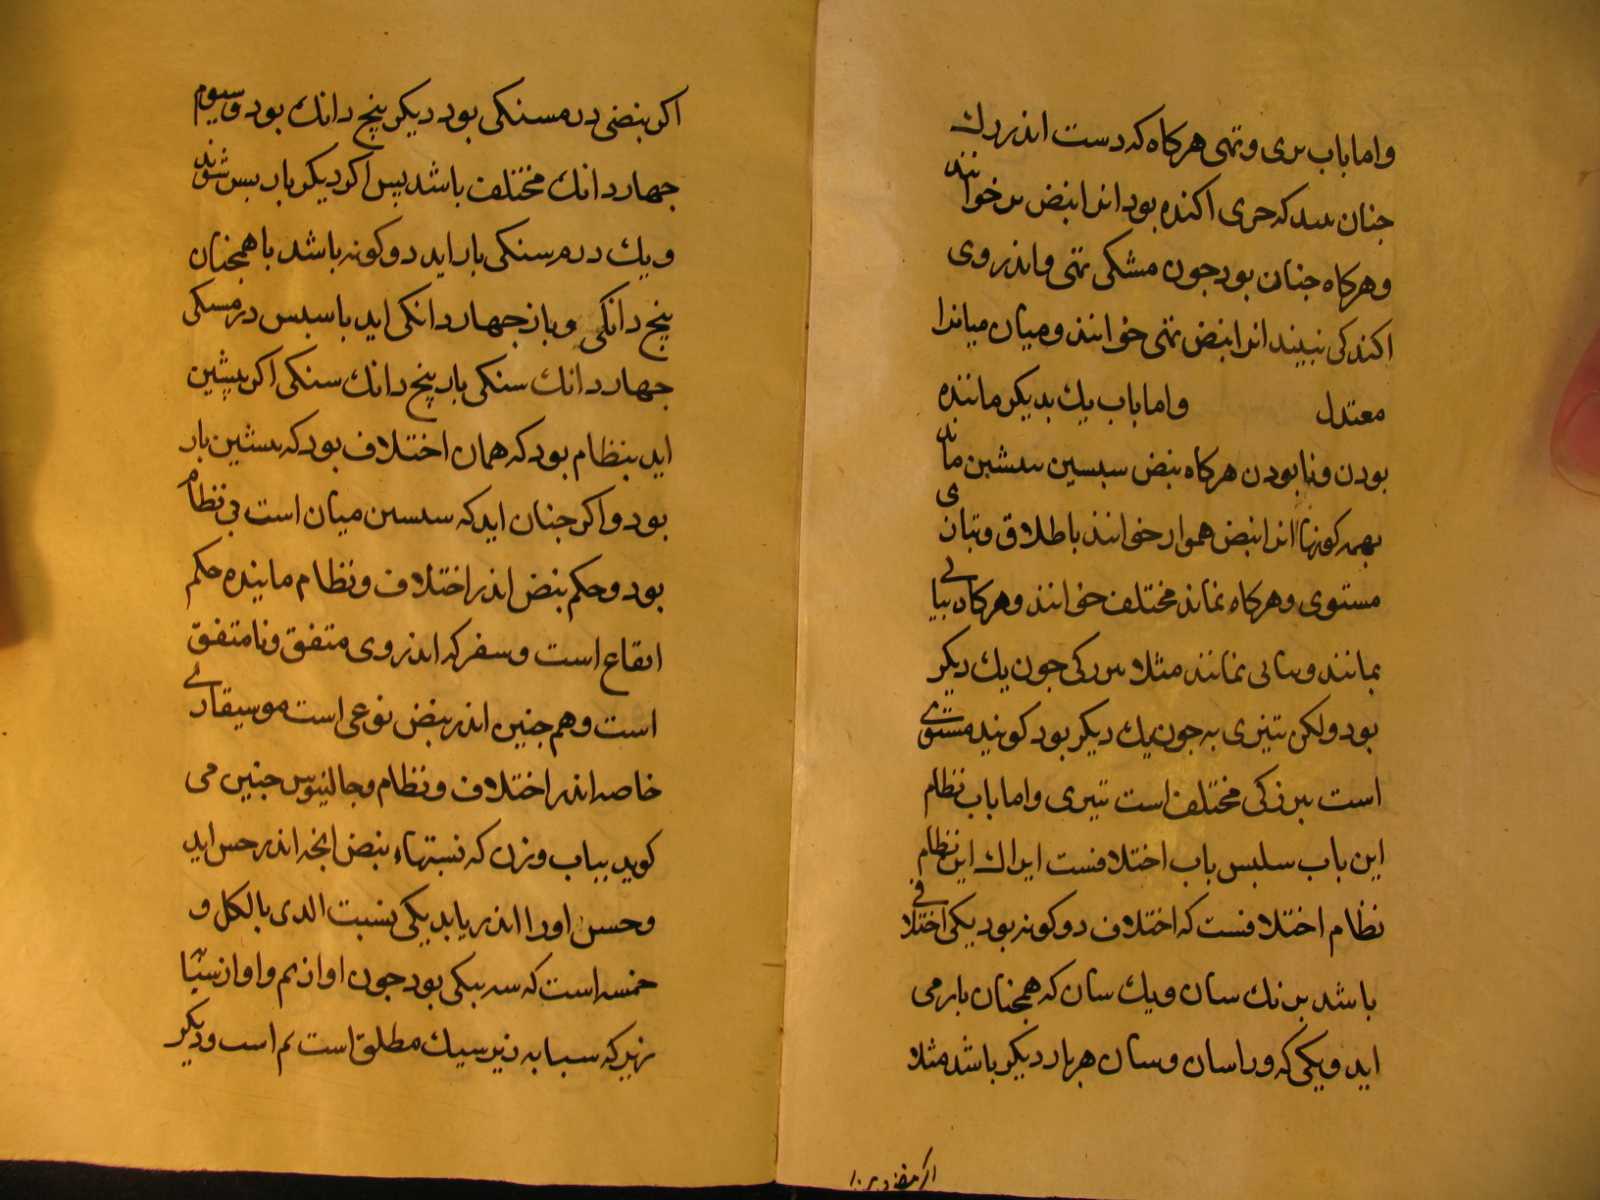 واما باب بری وتهی هرکاه که دست اندر رک
جنان بیند که جری اکنده بود انرا نبض بر خوانند
وهرکاه جنان بود جون مشکی تهی واندر وی
اکندکی نبیند انرا نبض تهی خوانند ومیان میانرا
معتدل واما باب یك بدیکر ماننده
بودن ونابودن هرکاه نبض سبسین ببیشین ماند
بهمه کونها انرا نبض هموار خوانند باطلاق وبتازی
مستوی وهرکاه نماند مختلف خوانند وهرکاه ببابی
بمانند وببابی نمانند مثلا ببزرکی جون یك دیکر
بود ولکن بتیزی نه جون یك دیکر بود کویند مستوی
است ببزرکی مختلف است بتیزی واما باب نظام
این باب سبس باب اختلافست ایراك این نظام
نظام اختلافست که اختلاف دو کونه بود یکی اختلافی
باشد بر یك سان ویك سان که همجنان باز می
اید ویکی که ورا سان وسان هربار دیکر باشد مثلا
اکر نبضی درمسنکی بود دیکر بنج دانك بود وسیوم
جهار دانك مختلف باشد بس اکر دیکر بار بس شوند
ویك درم سنکی باز اید دو کونه باشد با همجنان
بنج دانکی وباز جهار دانکی اید با سبس درمسنکی
جهار دانك سنکی باز بنج دانك سنکی اکر بیشین
اید بنظام بود که همان اختلاف بود که بیشین بار
بود واکر جنان اید که سبسین میان است بی نظام
بود وحکم نبض اندر اختلاف ونظام ماننده حکم
ایقاع است وسفر که اندر وی متفق ونامتفق
است وهم جنین اندر نبض نوعی است موسیقاری
خاصه اندر اختلاف ونظام وجالینوس جنین می
کوید بباب وزن که نسبتهاء نبض انجه اندر حس اید
وحسن او را اندر یابد یکی نسبت الذی بالکل و
خمسه است که سه بیکی بود جون اواز بم واواز سبابه
زیر که سبابه زیر سیك مطلق است بم است ودیکر